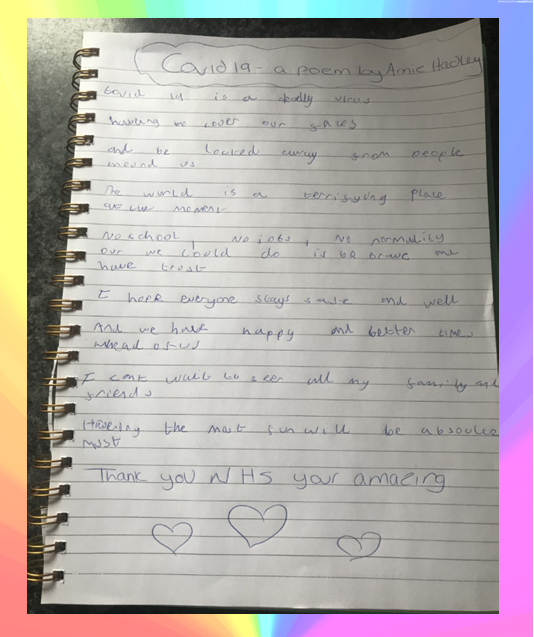 Covid 19 - a poem by Amie Hadley
Covid 19 is a deadly virus
having to cover our faces
and be locked away from people
around us
The world is a terrifying place
at the moment
No school, No jobs, No normality
our we could do is be brave and
have trust
I hope everyone stays safe and well
And we have happy and better times
ahead of us
I cant wait to seer all my family and
friends
Having the most fun will be absoulte
must
Thank you NHS your amazing